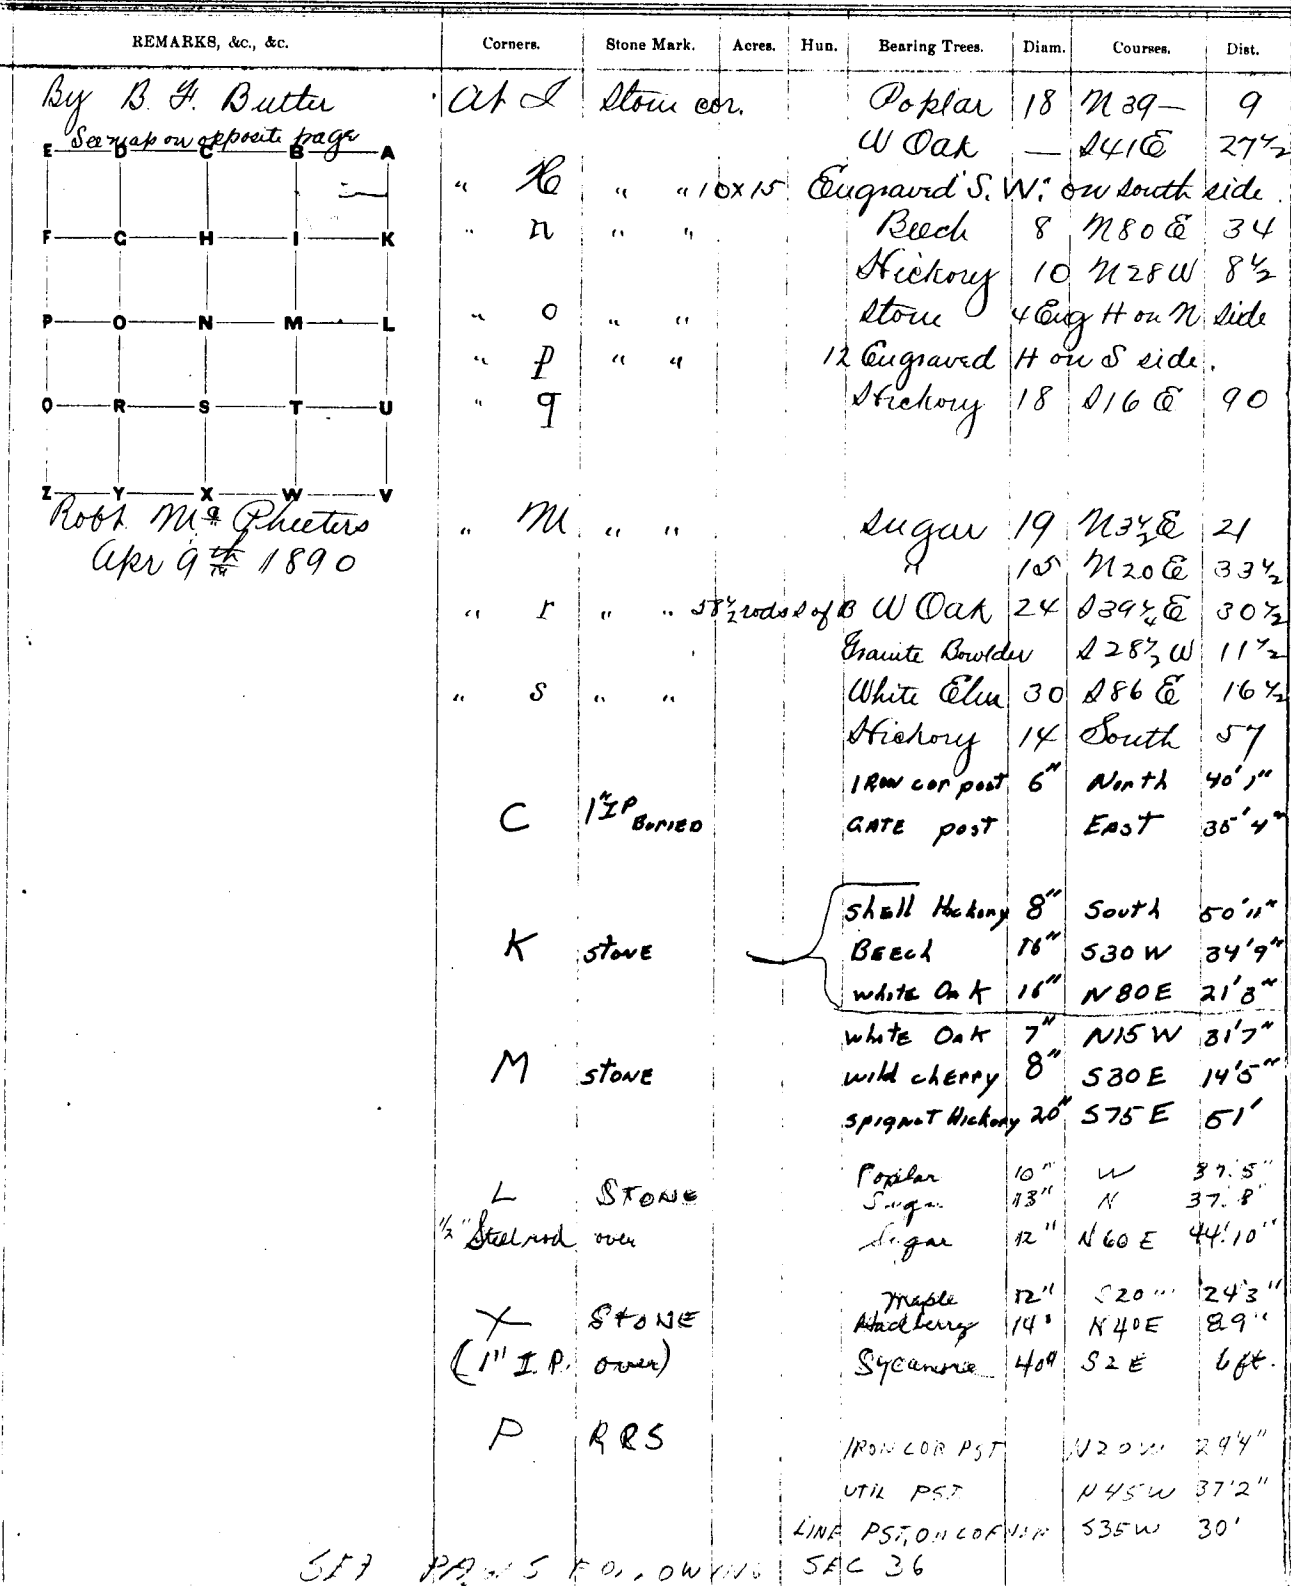 REMARKS, &c., &c. Corners. Stone Mark. Acres. Hun. Bearing Trees. Diam. Courses. Dist.
By B. F. Butler At I Stone cor. Poplar 18 N 39 — 9
See map on opposite page W Oak — S41E 27 1/2
E D C B A
" K " " 10x15 Engraved "S. W." on south side.
F G H I K
" n " " Beech 8 N80E 34
Hickory 10 N28W 8 1/2
P O N M L
" o " " Stone 4 Eng H on N side
" p " " 12 Engraved H on S side.
Q R S T U
" q Hickory 18 S16E 90
Z Y X W V
Robt Mc Pheeters " M " " Sugar 19 N3 1/2E 21
Apr 9th 1890 " 15 N20E 33 1/2
" r " " 58 1/2 rods S of B W Oak 24 S39 1/4E 30 1/2
Granite Bowlder S28 1/2W 11 1/2
" s " " White Elm 30 S86E 16 1/2
Hickory 14 South 57
IRON cor post 6" North 40'1"
C 1" IP BURIED GATE post EAST 35'4"
Shell Hickory 8" South 50'11"
K STONE BEECH 16" S30W 34'9"
White Oak 16" N80E 21'8"
White Oak 7" N15W 31'7"
M STONE wild cherry 8" S30E 14'5"
spignut Hickory 20" S75E 51'
Poplar 10" W 37.5"
L STONE Sugar 13" N 37.8"
1/2" Steel rod over Sugar 12" N60E 44'.10"
Maple 12" S20 24'3"
X STONE Hackberry 14" N40E 89"
(1" I.P. over) Sycamore 40" S2E 6 ft.
P RRS
IRON COR PST N20W 29'4"
UTIL PST N45W 37'2"
LINE PST, ON CORNER S35W 30'
FOLLOWING SEC 36